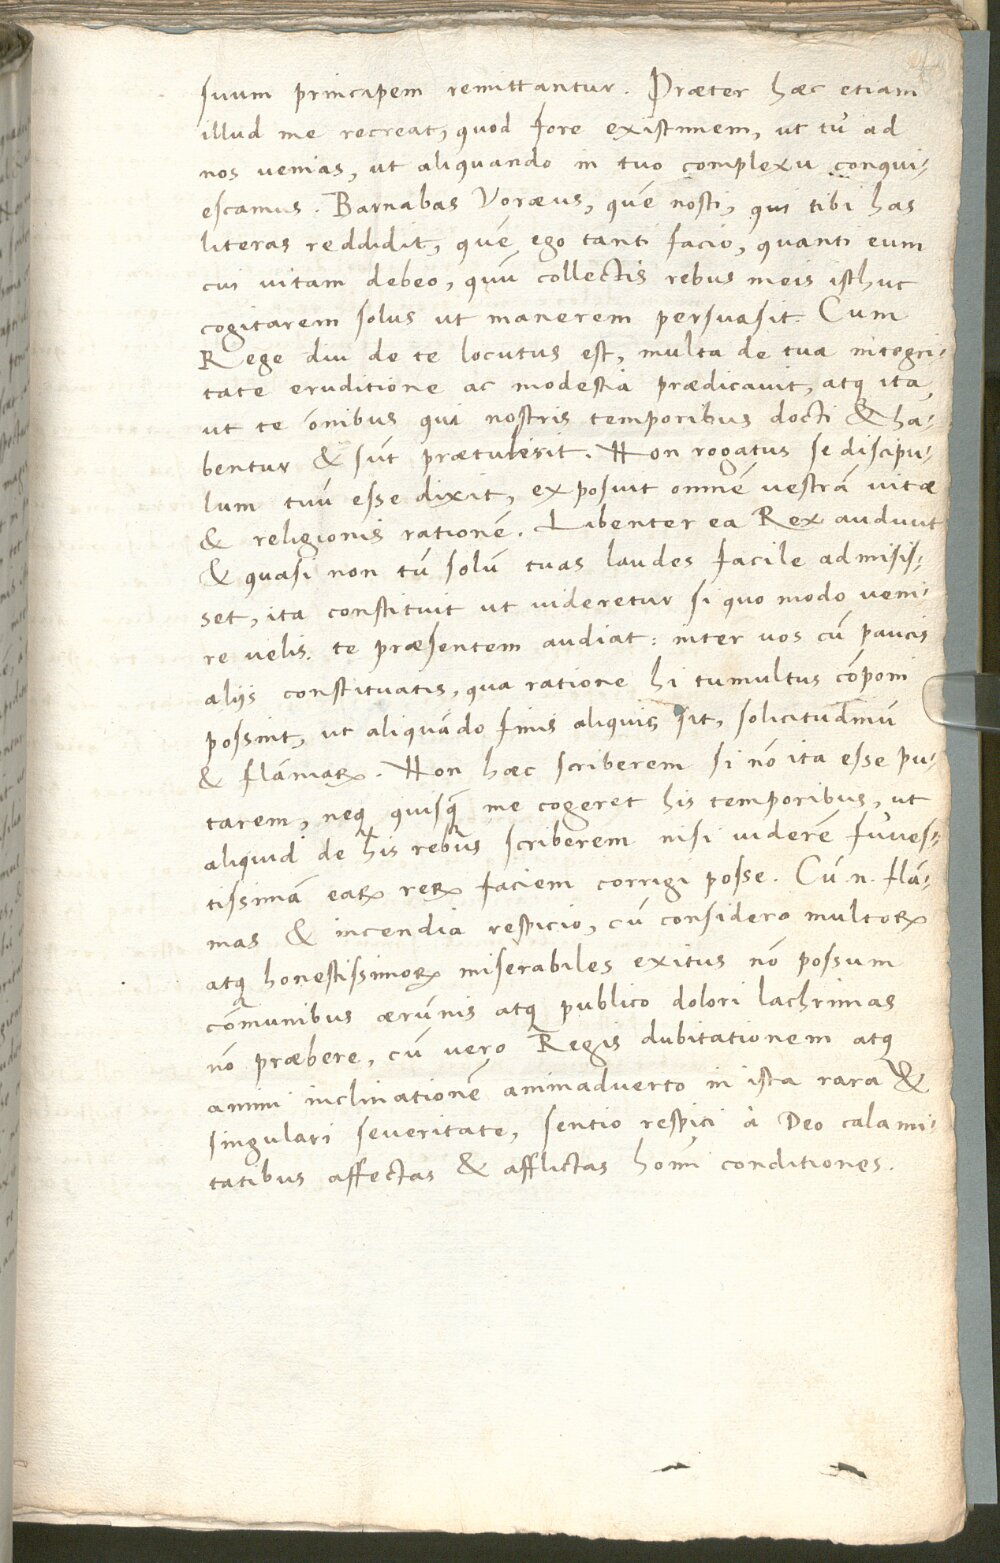 suum principem remittantur. Præter hæc etiam
illud me recreat, quod fore existimem, ut tu ad
nos uenias, ut aliquando in tuo complexu conqui-
escamus. Barnabas Voræus, quē nosti, qui tibi has
literas reddidit, quē ego tanti facio, quanti eum
cui uitam debeo, quū collectis rebus meis isthuc
cogitarem solus ut manerem persuasit. Cum
Rege diu de te locutus est, multa de tua integri-
tate eruditione ac modestia prædicauit, atq ita,
ut te ōnibus qui nostris temporibus docti & ha-
bentur & sūt prætulerit. Non rogatus se discipu-
lum tuū esse dixit, exposuit omnē uestrā uitæ
& religionis rationē. Libenter ea Rex audiuit
& quasi non tū solū tuas laudes facile admisis-
set, ita constituit ut uideretur si quo modo ueni-
re uelis. te præsentem audiat: inter uos cū paucis
aliis constituatis, qua ratione hi tumultus cōponi
possint, ut aliquādo finis aliquis sit, solicitudinū
& flāmarꝝ. Non hæc scriberem si nō ita esse pu-
tarem, neq quisq̄ me cogeret his temporibus, ut
aliquid de his rebus scriberem nisi uiderē funes-
tissimā earꝝ rerꝝ faciem corrigi posse. Cū .n. flā-
mas & incendia respicio, cū considero multorꝝ
atq honestissimorꝝ miserabiles exitus nō possum
cōmunibus ærūnis atq publico dolori lachrimas
nō præbere, cū uero Regis dubitationem atq
animi inclinationē animaduerto in ista rara &
singulari seueritate, sentio respici à Deo calami-
tatibus affectas & afflictas homī conditiones.